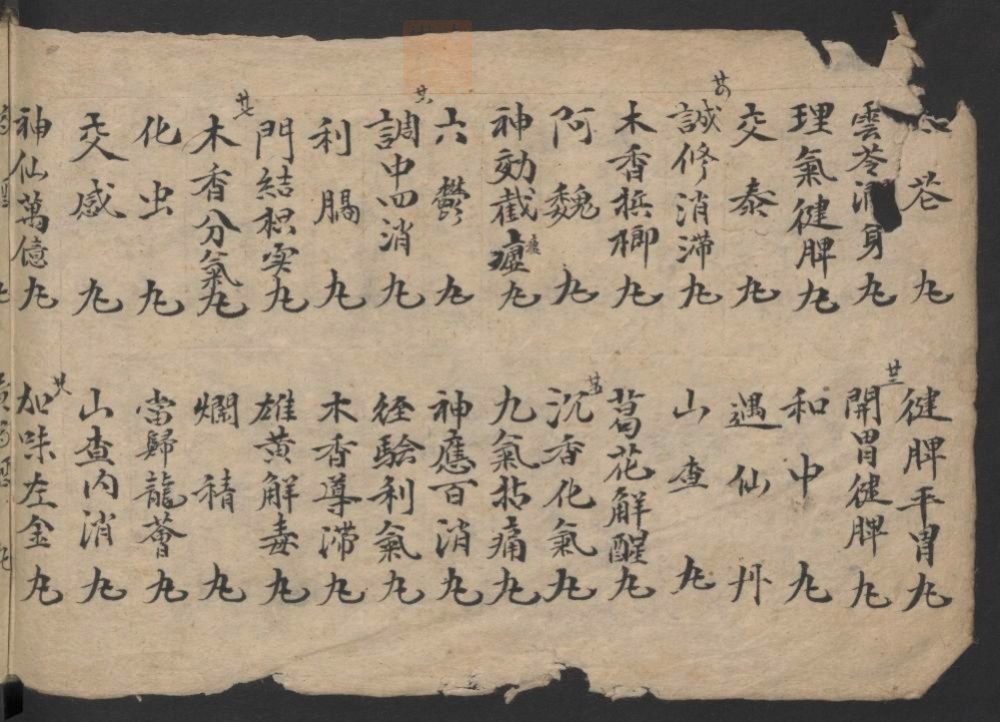 苍丸
健脾平胃丸
雲苓消身丸
廿三
開胃健脾丸
理氣健脾丸
和中丸
交泰丸
遇仙丹
廿四
誠修消滯丸
山查丸
木香檳榔丸
葛花解醒丸
阿魏丸
廿五
沉香化氣丸
神効截瘧丸
九氣拈痛丸
六鬱丸
神應百消丸
廿六
調中四消丸
経驗利氣丸
利膈丸
木香導滞丸
門結枳实丸
雄黄解毒丸
廿七
木香分氣丸
爛積丸
化虫丸
當歸龍薈丸
交感丸
山查内消丸
神仙萬億丸
廿八
加味左金丸